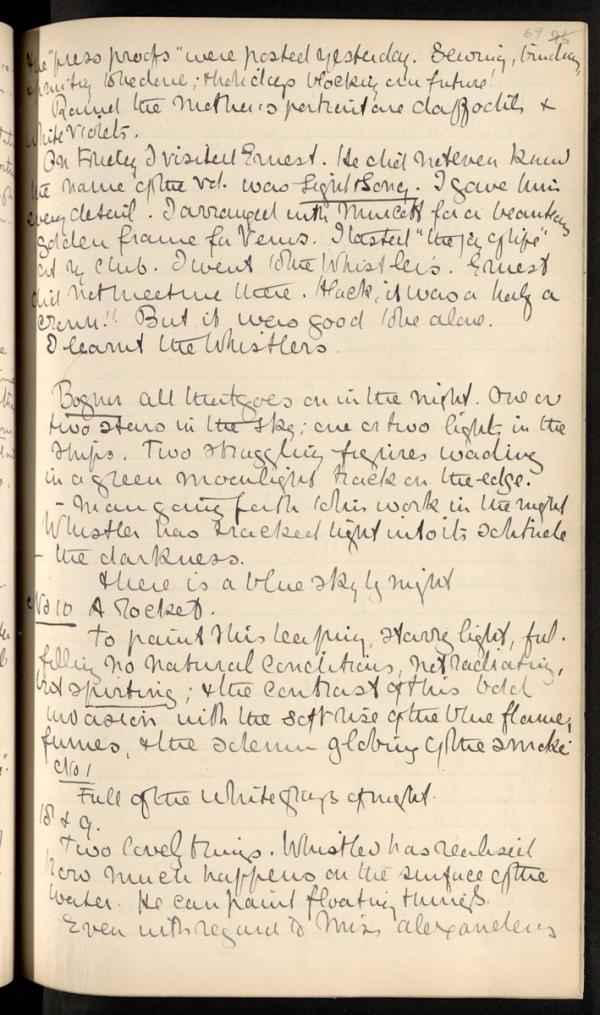 69
the "press proofs" were posted yesterday. Sewing, binding,
printing to be done; & holidays blocking our future!
Round the Mother's portrait are daffodils &
white violets.
On Friday I visited Ernest. He did not even know
the name of the vol. was Sight & Song. I gave him
every detail. I arranged with for a beauteous
golden frame for Venus. I tasted "the joy of life"
at my club. I went to the Whistlers. Ernest
did not meet me there. Alack, it was a half a
crown!! But it was good to be alone.
I learnt the Whistlers.
Bognor all that goes on in the night. One or
two stars in the sky; one or two lights in the
ships. Two straggling figures wading
in a green moonlight track on the edge.
– Man going forth to his work in the night
Whistler has tracked light into its solitude
– the darkness.
there is a blue sky by night
No 10 A Rocket.
To paint this leaping, starry light, ful-
filling no natural conditions, not radiating,
but spirting; & the contrast of this bold
invasion with the soft rise of the blue flame,
fumes, & the solemn globing of the smoke
No 1
Full of the white grays of night.
18 & 9.
Two lovely things. Whistler has realised
how much happens on the surface of the
water. He can paint floating things.
Even with regard to Miss Alexander's